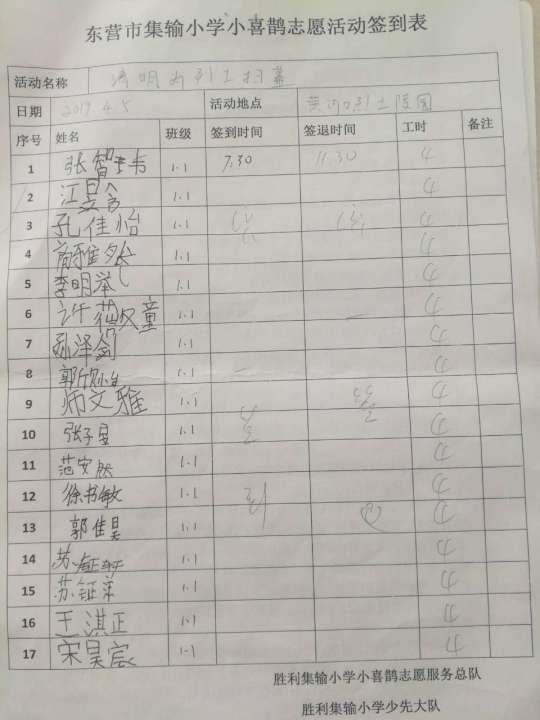 东营市集输小学小喜鹊志愿活动签到表
活动名称 清明为烈士扫墓
日期 2019.4.5 活动地点 黄河口烈士陵园
序号 姓名 班级 签到时间 签退时间 工时 备注
1 张智 1.1 7.30 11.30 4
2 江 1.1 4
3 孔佳怡 1.1 4
4 1.1 4
5 李明 1.1 4
6 许 童 1.1 4
7 孙泽剑 1.1 4
8 郭 1.1 4
9 师文雅 1.1 4
10 张子昱 1.1 4
11 范安然 1.1 4
12 徐书敏 1.1 4
13 郭佳昊 1.1 4
14 苏 1.1 4
15 苏钲 1.1 4
16 王淇正 1.1 4
17 宋昊宸 1.1 4
胜利集输小学小喜鹊志愿服务总队
胜利集输小学少先大队